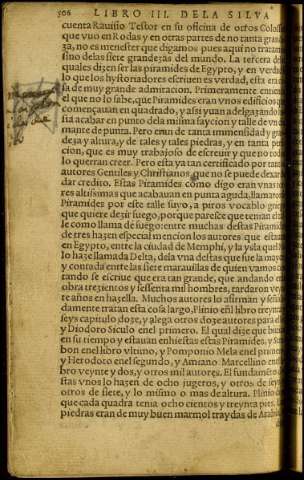 506 LIBRO III. DE LA SILVA
cuenta Rauisio Testor en su oficina de otros Colosos
que vuo en Rodas y en otras partes de no tanta grande
za, no es menester que digamos pues aqui no tratamos
sino delas siete grandezas del mundo. La tercera de
quales dizen ser las piramides de Egypto, y en verdad
lo que los hystoriadores escriuen es verdad, esta era
la de muy grande admiracion. Primeramente
el que no lo sabe, que Piramides eran vnos edificios que
començauan en quadrado, y assi yuan adelgazando has
sta acabar en punto dela misma faycion y talle de vn dia
mante de punta. Pero eran de tanta immensidad y gran
deza y altura, y de tales y tales piedras, y en tanta
cion, que es muy trabajoso de escreuir y que no todos
lo querran creer. Pero esta ya tan certificado por tantos
autores Gentiles y Christianos que no se puede dexar de
dar credito. Estas Piramides como digo eran vnas tor
res altissimas que acabauan en punta aguda, llamarons
Piramides por este talle suyo, a piros vocablo griego
que quiere dezir fuego, porque paresce que tenian el ta
lle como llama de fuego entre muchas destas Piramides
de tres hazen especial mencion los autores que estauan
en Egypto, entre la ciudad de Memphi, y la ysla quel Ni
lo haze llamada Delta, dela vna destas que fue la mayor
y contada entre las siete marauillas de quien vamos con
tando se escriue que era tan grande, que andando enla
obra trezientos y sessenta mil hombres, tardaron veyn
te años en hazella. Muchos autores lo afirman y señala
damente tratan esta cosa largo, Plinio enel libro treynta y
seys capitulo doze, y alega otros doze autores para ello
y Diodoro Siculo enel primero. El qual dize que
en su tiempo y estauan enhiestas estas Piramides, y Stra
bon enel libro vltimo, y Pomponio Mela enel primero
y Herodoto enel segundo, y Amiano Marcellino enel li
bro veynte y dos, y otros mil autores. El fundamento de
stas vnos lo hazen de ocho jugeros, y otros de seys
otros de siete, y lo mismo o mas de altura. Plinio dize
que cada quadra tenia ocho cientos y treynta pies. Las
piedras eran de muy buen marmol traydas de Arabia
Plinio